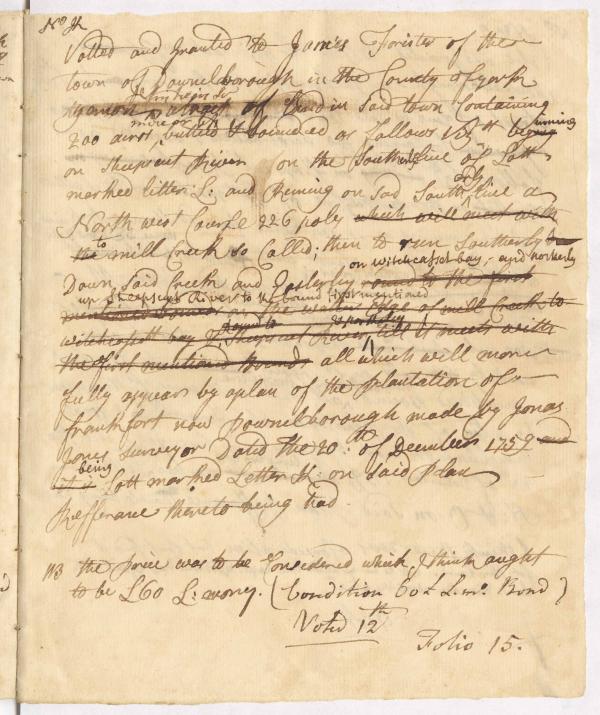 No. K
Votted and Granted to James Forister of the
town of Pownelborough in the County of york
a tract of Land in said town Containing
200 acres, more or less butted & bounded as follows Viz.tt being
on sheepscut River on the Southerly line of Lott
marked letter L: and Runing on sad Southerly line a
North west Courfe 226 poles which will meet with
the to mill Creek so Called; then to run Southerly
on witchcasset bay, and northerly
Down said Creek and Easterly round to the first
up Sheepscut River to the bound first mentioned
mentioned bound on the water side of mill Creek to
witchcasett bay & Sheepscut River till it meets with
the first mentioned Bounds all which will more
fully appears by a plan of the plantation of
frankfort now Pownelborough made by Jonas
Jones surveyor Dated the 20.th of December 1759 and
being
it is Lott marked Letter K: on said Plan
Refferance thereto being had.
NB the price was to be Considered which I think aught
to be £60 L: money. (Condition 60£ L. mo. Bond)
Voted 12th
Folio 15.